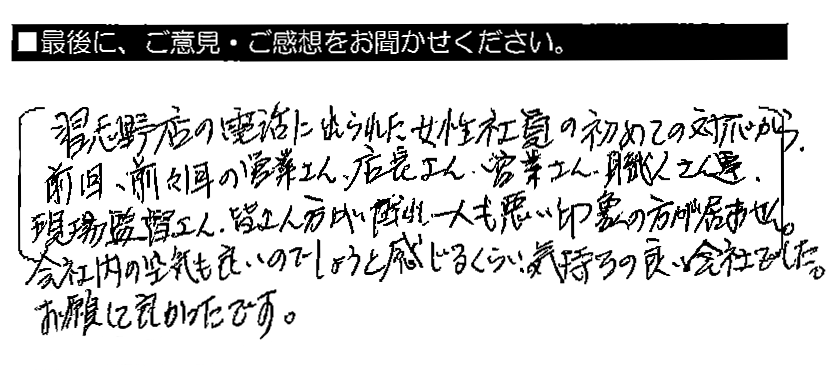 ■最後に、ご意見・ご感想をお聞かせください。
習志野店の電話に出られた女性社員の初めての対応から、
前回、前々回の営業さん、店長さん、営業さん、職人さん
現場監督さん、皆さん方 一人も悪い印象の方が居ません。
会社内の空気も良いのでしょうと感じるくらい気持ちの良い会社でした。
お願して良かったです。